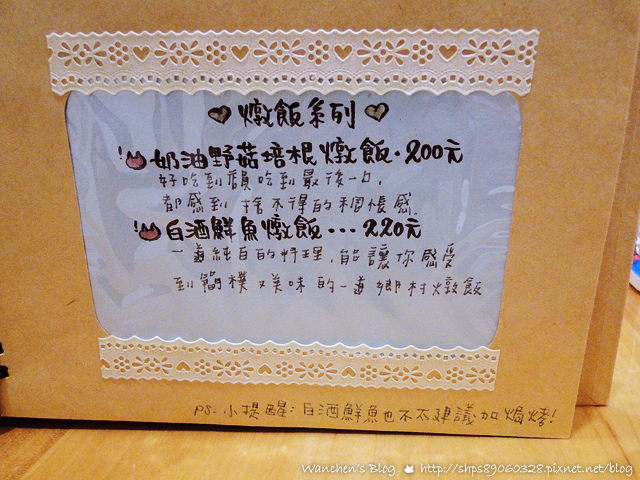 燉飯系列
奶油野菇培根燉飯.200元
好吃到韻吃到最後一口,
都感到 捨不得的惆悵感.
白酒鮮魚燉飯...220元
一道純白的料理,能讓你感受
到簡樸又美味的一道鄉村燉飯
PS-小提醒:白酒鮮魚也不太建議加焗烤!
Wanchen's Blog http://shps89060328.pixnet.net/blog